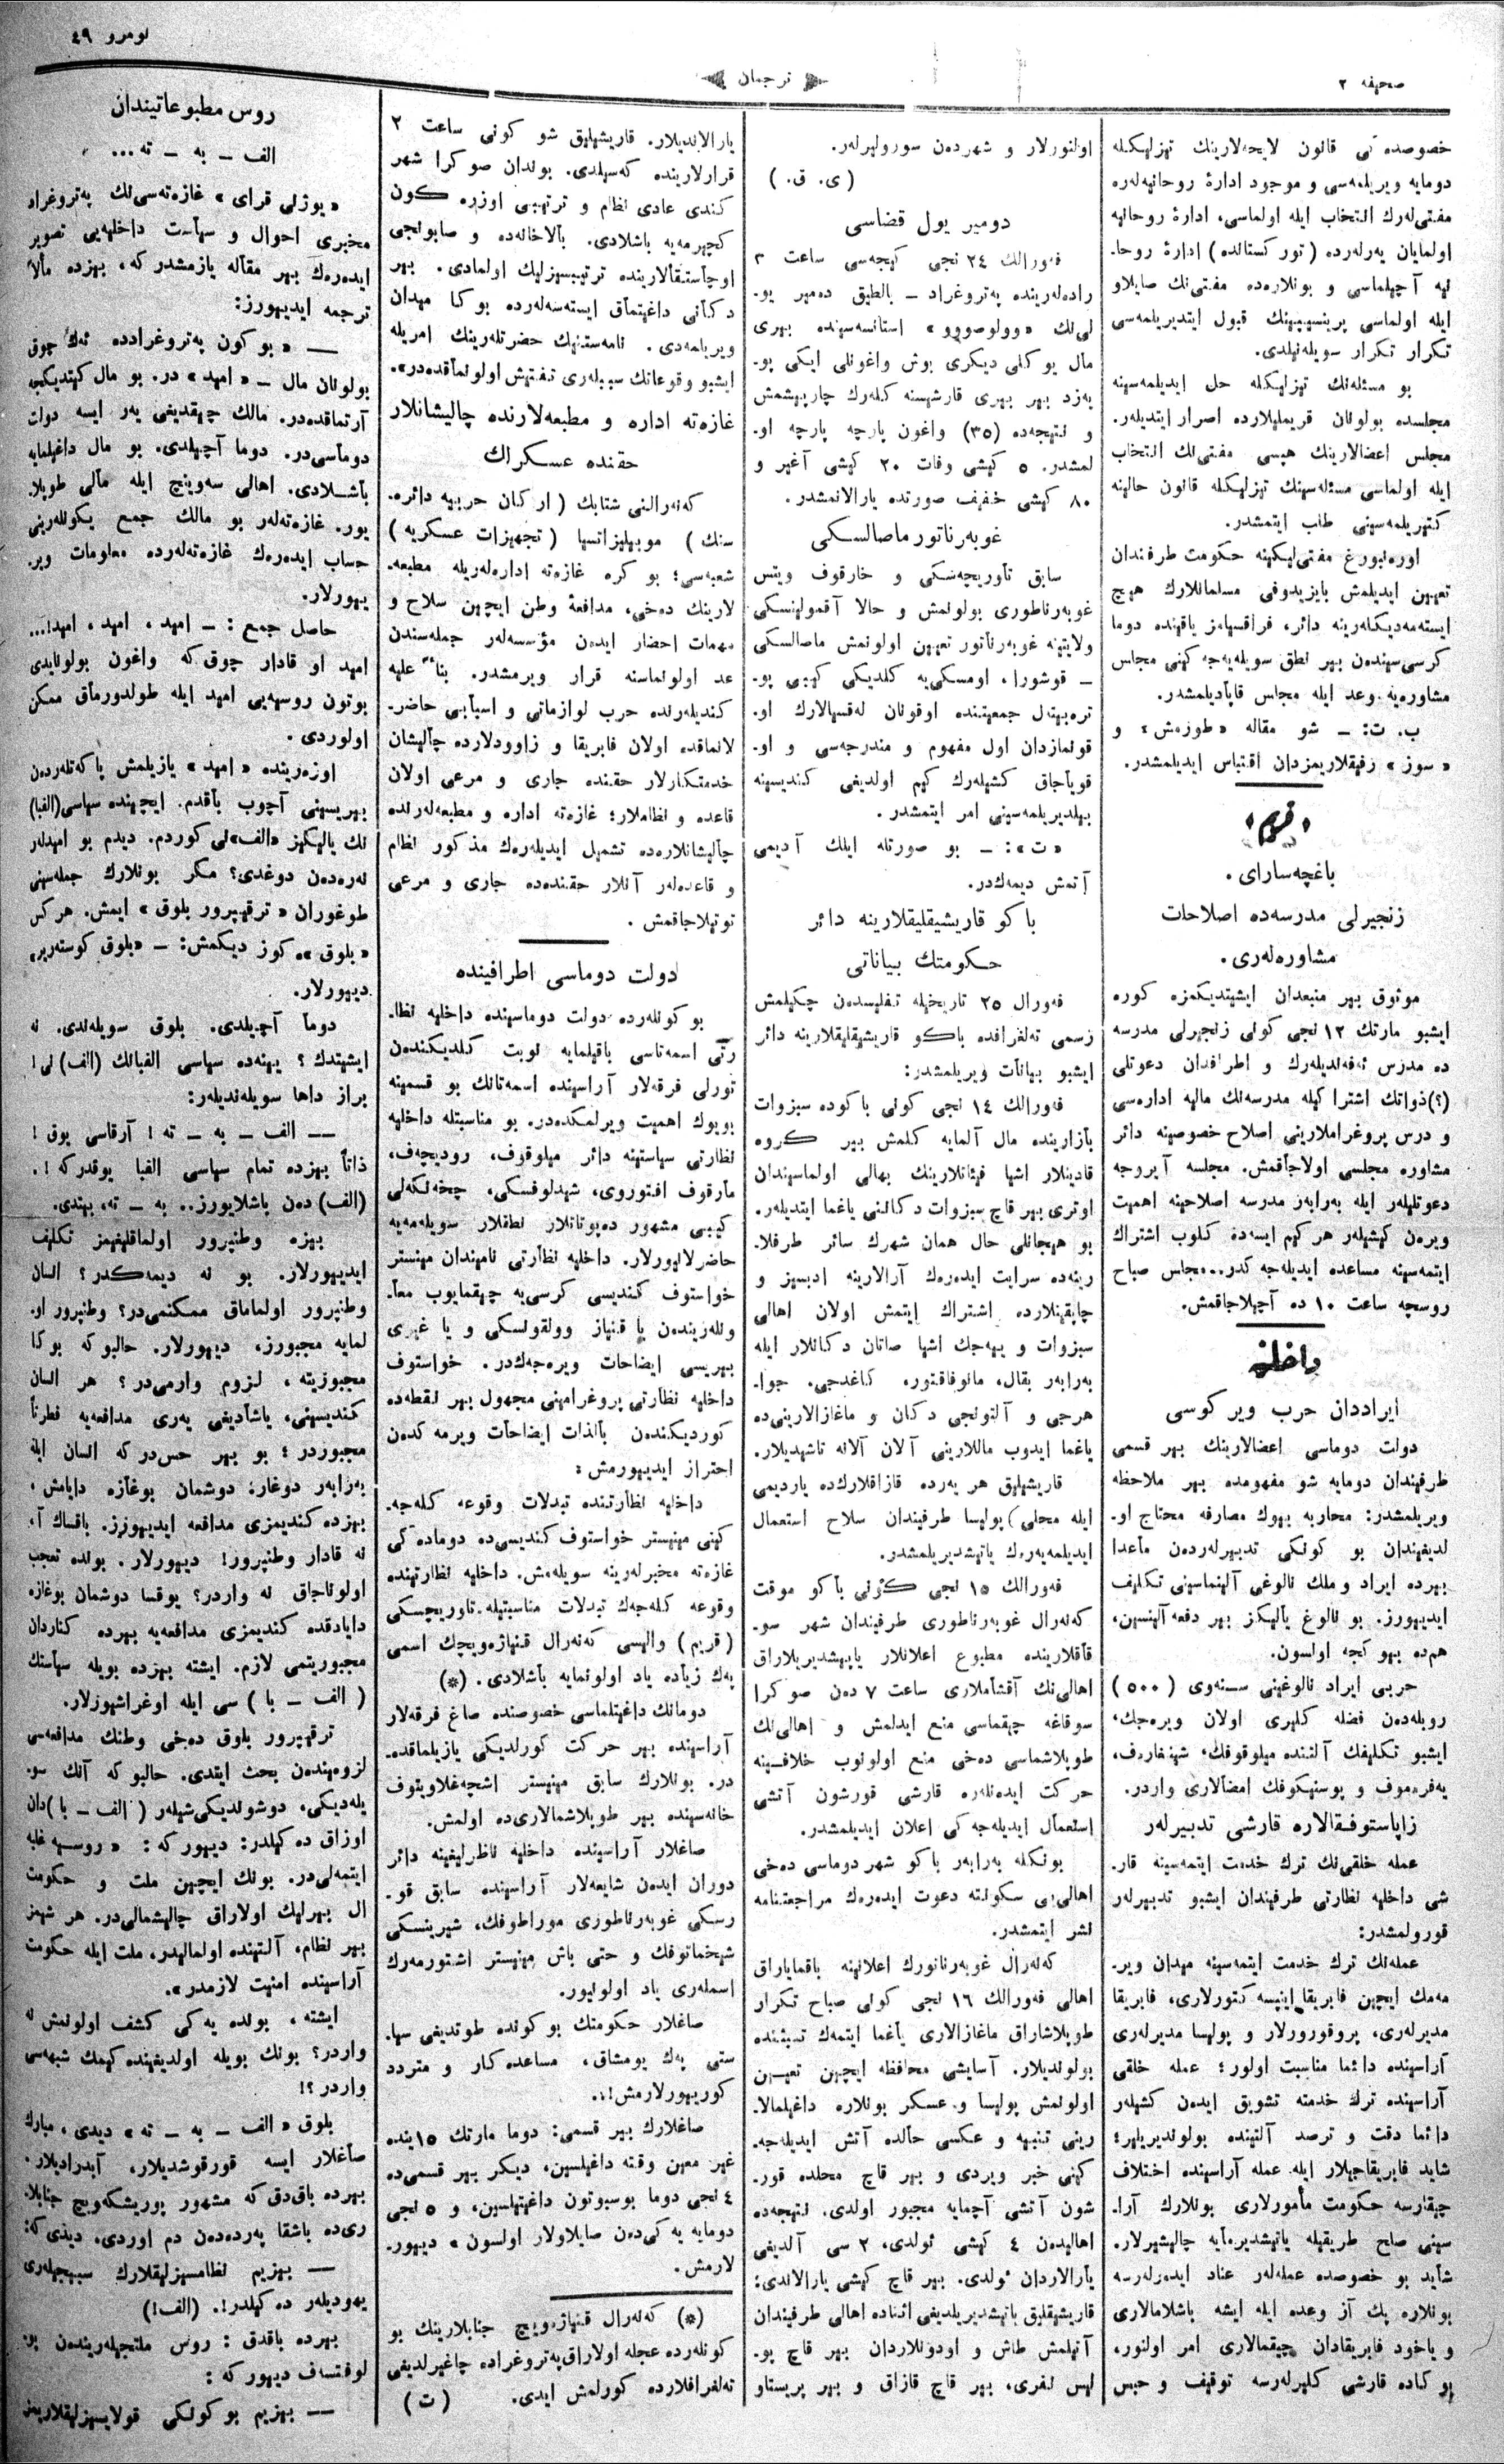 صحیفه ۲
ترجمان
نومرو ٤٩
خصوصده كی قانون لایحه‌لارینك تیزلیكله
دومایه ویریلمه‌سی و موجود ادارهٔ روحانیه‌لره
مفتی‌لرك انتخاب ایله اولماسی، ادارهٔ روحانیه
اولمایان یه‌رله‌رده (توركستانده) ادارهٔ روحا-
نیه آچیلماسی و بونلارده‌ده مفتی‌نك صایلاو
ایله اولماسی پرینسیپینك قبول ایتدیریلمه‌سی
تكرار تكرار سویله‌نیلدی.
بو مسئله‌نك تیزلیكله حل ایدیلمه‌سینه
مجلسده بولونان قریملیلارده اصرار ایتدیله‌ر.
مجلس اعضالارینك هپسی مفتی‌نك انتخاب
ایله اولماسی مسئله‌سینك تیزلیكله قانون حالینه
كتیریلمه‌سینی طلب ایتمشدر.
اوره‌نبورغ مفتی‌لیكینه حكومت طرفندان
تعیین ایدیلمش بایزیدوفی مسلمانلارك هیچ
ایسته‌مه‌دیكله‌رینه دائر، فراقسیامز یاقینده دوما
كرسی‌سیندن بیر نطق سویله‌یه‌جه‌كینی مجلس
مشاوره‌یه وعد ایله مجلس قاپادیلمشدر.
ب. ت: ـ شو مقاله «طورمش» و
«سوز» رفیقلاریمزدان اقتباس ایدیلمشدر.
قریم
باغچه‌سارای.
زنجیرلی مدرسه‌ده اصلاحات
مشاوره‌له‌ری.
موثوق بیر منبعدان ایشیتدیكمزه كوره
ایشبو مارتك ۱۲ نجی كونی زنجیرلی مدرسه
ده مدرس ئه‌فه‌ندیله‌رك و اطرافدان دعوتلی
(؟) ذواتك اشتراكیله مدرسه‌نك مالیه اداره‌سی
و درس پروغراملارینی اصلاح خصوصینه دائر
مشاوره مجلسی اولاجاقمش. مجلسه آیروجه
دعوتلیله‌ر ایله به‌رابه‌ر مدرسه اصلاحینه اهمیت
ویره‌ن كیشیله‌ر هر كیم ایسه‌ده كلوب اشتراك
ایتمه‌سینه مساعده ایدیله‌جه‌كدر.. مجلس صباح
روسچه ساعت ۱۰ ده آچیلاجاقمش.
داخلیه
ایراددان حرب ویركوسی
دولت دوماسی اعضالارینك بیر قسمی
طرفیندان دومایه شو مفهومده بیر ملاحظه
ویریلمشدر: محاربه بیوك مصارفه محتاج او-
لدیغیندان بو كونكی تدبیرله‌ردن ماعدا
بیرده ایراد و ملك نالوغی آلینماسینی تكلیف
ایدییورز. بو نالوغ یالیكز بیر دفعه آلینسین،
هم‌ده بیوكجه اولسون.
حربی ایراد نالوغینی سنه‌وی (۵۰۰)
روبله‌دن فضله كلیری اولان ویره‌جك،
ایشبو تكلیفك آلتنده میلوقوفك، شینغاروف،
یه‌فره‌موف و پوسنیكوفك امضالاری واردر.
زاباستوفقالاره قارشی تدبیرله‌ر
عمله خلقی‌نك ترك خدمت ایتمه‌سینه قار-
شی داخلیه نظارتی طرفیندان ایشبو تدبیرله‌ر
قورولمشدر:
عمله‌نك ترك خدمت ایتمه‌سینه میدان ویر-
مه‌مك ایچین فابریقا اینپسه‌كتورلاری، فابریقا
مدیرله‌ری، پروقورورلار و پولیسا مدیرله‌ری
آراسینده دائما مناسبت اولور؛ عمله خلقی
آراسینده ترك خدمته تشویق ایده‌ن كشیله‌ر
دائما دقت و ترصد آلتینده بولوندیریلیر؛
شاید فابریقاجیلار ایله عمله آراسینده اختلاف
چیقارسه حكومت مأمورلاری بونلارك آرا-
سینی صلح طریقیله یاتیشدیرمایه چالیشیرلار.
شاید بو خصوصده عمله‌له‌ر عناد ایدرله‌رسه
بونلاره پك آز وعده ایله ایشه باشلامالاری
و یاخود فابریقادان چیقمالاری امر اولنور،
بو كاده قارشی كلیرله‌رسه توقیف و حبس
اولنورلار و شهردن سورولیرله‌ر.
(ی. ق.)
دومیر یول قضاسی
فه‌ورالك ۲٤ نجی كیجه‌سی ساعت ۳
راده‌له‌رینده په‌تروغراد ـ بالطیق ده‌میر یو-
لی‌نك «وولوصوو» استانسه‌سینده بیری
مال یوكلی دیكری بوش واغونلی ایكی پو-
یه‌زد بیر بیری قارشیسنه كله‌رك چارپیشمش
و نتیجه‌ده (۳۵) واغون پارچه پارچه او-
لمشدر. ۵ كیشی وفات ۲۰ كیشی آغیر و
۸۰ كیشی خفیف صورتده یارالانمشدر.
غوبه‌رناتور ماصالسكی
سابق تاوریچه‌سكی و خارقوف ویتس
غوبه‌رناطوری بولونمش و حالا آقمولینسكی
ولایتینه غوبه‌رناتور تعیین اولونمش ماصالسكی
ـ قوشورا، اومسكی‌یه كلدیكی كیبی پو-
تره‌بیتل جمعیتنده اوقونان له‌قسیالارك او-
قونمازدان اول مفهوم و مندرجه‌سی و او-
قویاجاق كشیله‌رك كیم اولدیغی كندیسینه
بیلدیریلمه‌سینی امر ایتمشدر.
«ت»: ـ بو صورتله ایلك آدیمی
آتمش دیمه‌كدر.
باكو قاریشیقلیقلارینه دائر
حكومتك بیاناتی
فه‌ورال ۲۵ تاریخیله تفلیسدن چكیلمش
رسمی ته‌لغرافده باكو قاریشیقلیقلارینه دائر
ایشبو بیانات ویریلمشدر:
فه‌ورالك ۱٤ نجی كونی باكوده سبزوات
بازارینده مال آلمایه كلمش بیر گروه
قادینلار اشیا فیئاتلارینك بهالی اولماسیندان
اوتری بیر قاچ سبزوات دكاننی یاغما ایتدیله‌ر.
بو هیجانلی حال همان شهرك سائر طرفلا-
رینه‌ده سرایت ایده‌رك آرالارینه ادبسیز و
چاپقینلارده اشتراك ایتمش اولان اهالی
سبزوات و ییه‌جك اشیا صاتان دكانلار ایله
به‌رابه‌ر بقال، مانوفاقتور، كاغدجی، جوا-
هرجی و آلتونجی دكان و ماغازالارینی‌ده
یاغما ایدوب ماللارینی آلان آلانه تاشیدیلار.
قاریشلیق هر یه‌رده قازاقلارك‌ده یاردیمی
ایله محلی) پولیسا طرفیندان سلاح استعمال
ایدیلمه‌یه‌رك یاتیشدیریلمشدر.
فه‌ورالك ۱۵ نجی كونی باكو موقت
كه‌نه‌رال غوبه‌رناطوری طرفیندان شهر سو-
قاقلارینده مطبوع اعلانلار یاپیشدیریلاراق
اهالی‌نك آقشاملاری ساعت ۷ ده‌ن صوكرا
سوقاغه چیقماسی منع ایدلمش و اهالی‌نك
طوپلاشماسی ده‌خی منع اولونوب خلافینه
حركت ایده‌نله‌ره قارشی قورشون آتشی
استعمال ایدیله‌جه‌كی اعلان ایدیلمشدر.
بونكله به‌رابه‌ر باكو شهر دوماسی ده‌خی
اهالی‌یی سكونته دعوت ایده‌رك مراجعتنامه
نشر ایتمشدر.
كه‌نه‌رال غوبه‌رناتورك اعلانینه باقمایاراق
اهالی فه‌ورالك ۱٦ نجی كونی صباح تكرار
طوپلاشاراق ماغازالاری یاغما ایتمه‌ك تشبثنده
بولوندیلار. آسایشی محافظه ایچین تعیین
اولونمش پولیسا و عسكر بونلاره داغیلمالا-
رینی تنبیه و عكسی حالده آتش ایدیله‌جه-
كینی خبر ویردی و بیر قاچ محلده قور-
شون آتشی آچمایه مجبور اولدی. نتیجه‌ده
اهالیدن ٤ كیشی ئولدی، ۲ سی آلدیغی
یارالاردان ئولدی. بیر قاچ كیشی یارالاندی؛
قاریشیقلیق یاتیشدیریلدیغی اثناده اهالی طرفیندان
آتیلمش طاش و اودونلاردان بیر قاچ پو-
لیس نفری، بیر قاچ قازاق و بیر پریستاو
یارالاندیلار. قاریشیلیق شو كونی ساعت ۲
قرارلارینده كه‌سیلدی. بوندان صوكرا شهر
كندی عادی نظام و ترتیبی اوزره كون
كچیرمه‌یه باشلادی. بالاخانه‌ده و صابونجی
اوچاستقالارینده ترتیبسیزلیك اولمادی. بیر
دكانی داغیتماق ایسته‌سه‌له‌رده بوكا میدان
ویریلمه‌دی. نامه‌ستنیك حضرتله‌رینك امریله
ایشبو وقوعاتك سببله‌ری تفتیش اولونماقده‌در».
غازه‌ته اداره و مطبعه‌لارنده چالیشانلار
حقنده عسكرلك
كه‌نه‌رالنی شتابك (اركان حربیه دائره-
سنك) موبیلیزاتسیا (تجهیزات عسكریه)
شعبه‌سی؛ بو كره غازه‌ته اداره‌له‌ریله مطبعه-
لارینك ده‌خی، مدافعهٔ وطن ایچین سلاح و
مهمات احضار ایده‌ن مؤسسه‌له‌ر جمله‌سندن
عد اولونماسنه قرار ویرمشدر. بناءً علیه
كندیله‌رنده حرب لوازماتی و اسبابی حاضر-
لانماقده اولان فابریقا و زاوودلارده چالیشان
خدمتكارلار حقنده جاری و مرعی اولان
قاعده و نظاملار؛ غازه‌ته اداره و مطبعه‌له‌رنده
چالیشانلاره‌ده تشمیل ایدیله‌رك مذكور نظام
و قاعده‌له‌ر آنلار حقنده‌ده جاری و مرعی
توتیلاجاقمش.
دولت دوماسی اطرافینده
بو كونله‌رده دولت دوماسینده داخلیه نظا-
رتی اسمه‌تاسی باقیلمایه نوبت كلدیكندن
تورلی فرقه‌لار آراسینده اسمه‌تانك بو قسمینه
بویوك اهمیت ویرلمكده‌در. بو مناسبتله داخلیه
نظارتی سیاستینه دائر میلوقوف، رودیچه‌ف،
مارقوف افتوروی، شیدلوفسكی، چخه‌نكه‌لی
كیبی مشهور ده‌پوتاتلار نطقلار سویله‌مه‌یه
حاضرلانیورلار. داخلیه نظارتی نامیندان مینستر
خواستوف كندیسی كرسی‌یه چیقمایوب معا-
ونله‌رینده‌ن یا قنیاز وولقونسكی و یا غیری
بیریسی ایضاحات ویره‌جه‌كدر. خواستوف
داخلیه نظارتی پروغرامینی مجهول بیر نقطه‌ده
كوردیكندن بالذات ایضاحات ویرمه‌كدن
احتراز ایدییورمش:
داخلیه نظارتنده تبدلات وقوعه كله‌جه-
كینی مینیستر خواستوف كندیسی‌ده دوماده‌كی
غازه‌ته مخبرله‌رینه سویله‌مش. داخلیه نظارتینده
وقوعه كله‌جه‌ك تبدلات مناسبتیله تاوریچسكی
(قریم) والیسی كه‌نه‌رال قنیاژه‌ویچك اسمی
په‌ك زیاده یاد اولونمایه باشلادی. (*)
دومانك داغیتلماسی خصوصنده صاغ فرقه‌لار
آراسینده بیر حركت كورلدیكی یازیلماقده-
در. بونلارك سابق مینیستر اشچه‌غلاویتوف
خانه‌سینده بیر طوپلاشمالاری‌ده اولمش.
صاغلار آراسینده داخلیه ناظرلیغینه دائر
دوران ایده‌ن شایعه‌لار آراسینده سابق قو-
رسكی غوبه‌رناطوری موراطوفك، شیرینسكی
شیخماتوفك و حتی باش مینیستر اشتورمه‌رك
اسمله‌ری یاد اولونیور.
صاغلار حكومتك بو كونده طوتدیغی سیا-
ستی په‌ك یومشاق، مساعده‌كار و متردد
كورییورلارمش!..
صاغلارك بیر قسمی: دوما مارتك ۱۵ینده
غیر معین وقته داغیلسین، دیكر بیر قسمی‌ده
٤ نجی دوما بوسبوتون داغیتیلسین، و ۵ نجی
دومایه یه‌كی‌ده‌ن صایلاولار اولسون» دییور-
لارمش.
(*) كه‌نه‌رال قنیاژه‌ویچ جنابلارینك بو
كونله‌رده عجله اولاراق په‌تروغراده چاغیرلدیغی
ته‌لغرافلارده كورلمش ایدی. (ت)
روس مطبوعاتیندان
الف ـ به ـ ته...
«یوژنی قرای» غازه‌ته‌سی‌نك په‌تروغراد
مخبری احوال و سیاست داخلیه‌یی تصویر
ایده‌رك بیر مقاله یازمشدر كه، بیزده مآلاً
ترجمه ایدییورز:
ـ «بو كون په‌تروغرادده ئه‌ك چوق
بولونان مال ـ «امید» در. بو مال كیتدیكجه
آرتماقده‌در. مالك چیقدیغی یه‌ر ایسه دولت
دوماسی‌در. دوما آچیلدی. بو مال داغیلمایه
باشلادی. اهالی سه‌وینچ ایله مالی طوپلا-
یور. غازه‌ته‌له‌ر بو مالك جمع یكونله‌رینی
حساب ایده‌رك غازه‌ته‌له‌رده معلومات ویر-
ییورلار.
حاصل جمع: ـ امید، امید، امید!...
امید او قادار چوق كه واغون بولونایدی
بوتون روسیه‌یی امید ایله طولدورماق ممكن
اولوردی.
اوزه‌رینده «امید» یازیلمش پاكه‌تله‌ردن
بیریسینی آچوب باقدم. ایچینده سیاسی (الفبا)
نك یالیكیز «الف»نی كوردم. دیدم بو امیدله‌ر
نه‌ره‌ده‌ن دوغدی؟ مكر بونلارك جمله‌سینی
طوغوران «ترقیپرور بلوق» ایمش. هركس
«بلوق»ه كوز دیكمش: ـ «بلوق كوسته‌ریر»
دییورلار.
دوما آچیلدی. بلوق سویله‌ندی. نه
ایشیتدك؟ یینه‌ده سیاسی الفبانك (الف) نی!
براز داها سویله‌ندیله‌ر:
ـ الف ـ به ـ ته! آرقاسی یوق!
ذاتاً بیزده تمام سیاسی الفبا یوقدركه!.
(الف) ده‌ن باشلایورز.. به ـ ته، بیتدی.
بیزه وطنپرور اولماقلیغیمز تكلیف
ایدییورلار. بو نه دیمه‌كدر؟ انسان
وطنپرور اولماماق ممكنمی‌در؟ وطنپرور او-
لمایه مجبورز، دییورلار. حالبوكه بوكا
مجبوریته، لزوم وارمی‌در؟ هر انسان
كندیسینی، یاشادیغی یه‌ری مدافعه‌یه فطرتاً
مجبوردر؛ بو بیر حس‌در كه انسان ایله
به‌رابه‌ر دوغار: دوشمان بوغازه دایامش،
بیزده كندیمزی مدافعه ایدییورز. باقساك آ،
نه قادار وطنپرور! دییورلار. بونده تعجب
اولوناجاق نه واردر؟ یوقسا دوشمان بوغازه
دایادقده كندیمزی مدافعه‌یه بیرده كناردان
مجبوریتمی لازم. ایشته بیزده بویله سیاستك
(الف ـ با) سی ایله اوغراشیورلار.
ترقیپرور بلوق ده‌خی وطنك مدافعه‌سی
لزومیندن بحث ایتدی. حالبوكه آنك سو-
یله‌دیكی، دوشوندیكی شیله‌ر (الف ـ با)دان
اوزاق ده‌كیلدر: دییور كه: «روسیه غلبه
ایتمه‌لی‌در. بونك ایچین ملت و حكومت
ال بیرلیك اولاراق چالیشمالی‌در. هر شیمز
بیر نظام، آلتینده اولمالیدر، ملت ایله حكومت
آراسینده امنیت لازمدر».
ایشته، بونده یه‌كی كشف اولونمش نه
واردر؟ بونك بویله اولدیغینده كیمك شبهه‌سی
واردر؟!
بلوق «الف ـ به ـ ته» دیدی، مبارك
صاغلار ایسه قورقوشدیلار، آیدرادیلار.
بیرده باق‌دق كه مشهور پوریشكه‌ویچ جنابلا-
ری‌ده باشقا په‌رده‌ده‌ن دم اوردی، دیدی كه:
ـ بیزیم نظامسیزلیقلارك سببجیله‌ری
یه‌ودیله‌ر ده‌كیلدر!. (الف!)
بیرده باقدق: روس ملتجیله‌رینده‌ن پو-
لوفتسه‌ف دییور كه:
ـ بیزیم بو كونكی قولایسیزلیقلاریمز